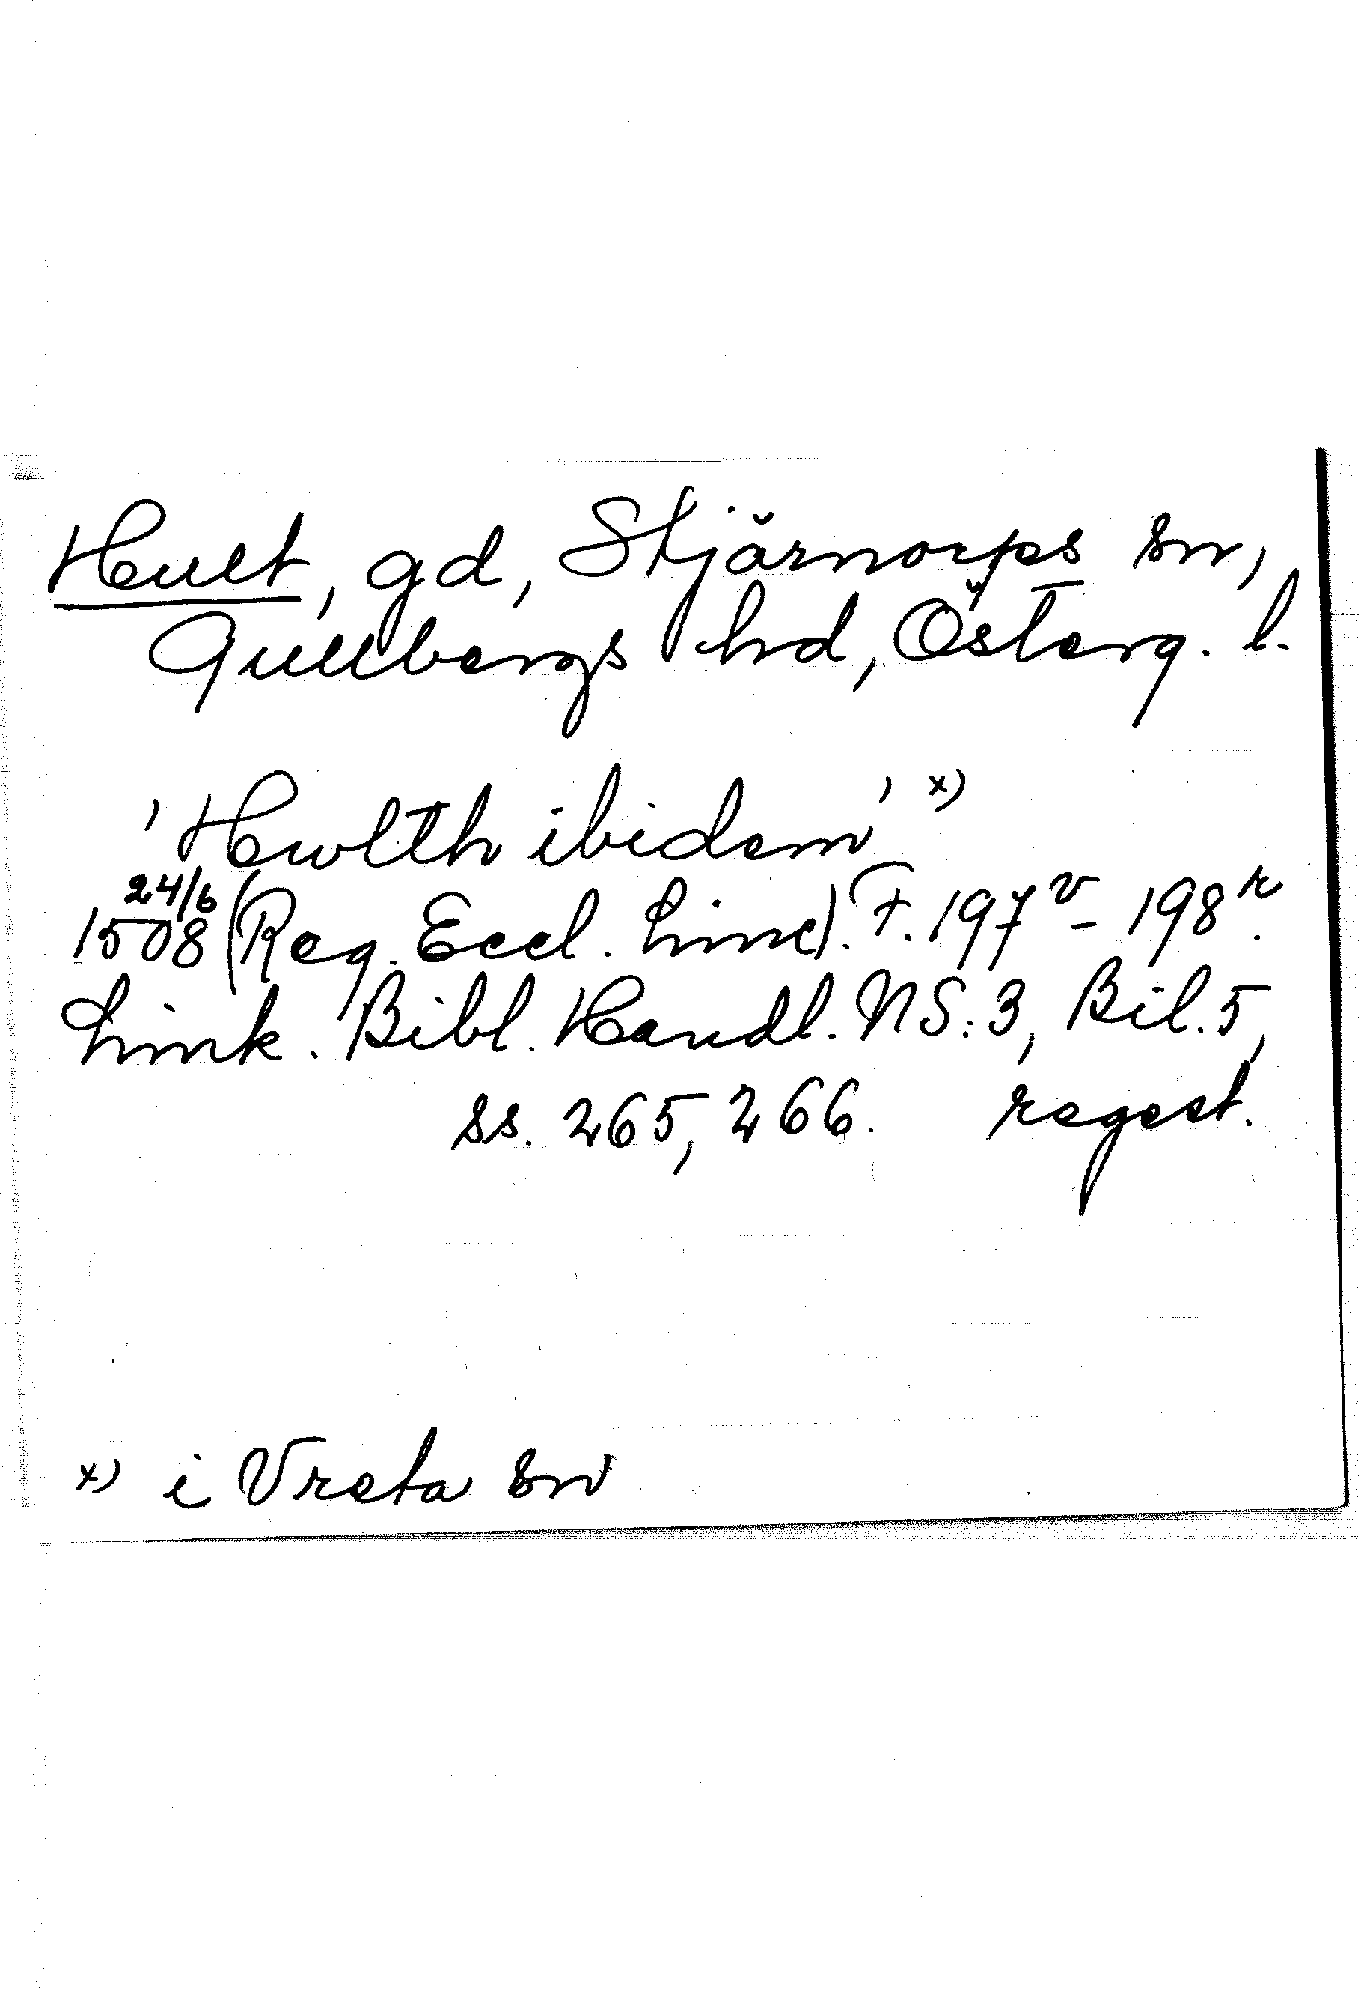 Hult, gd, Stjärnorps sn,
Gullbergs hd, Österg. l.
'Hwlth ibidem' x)
24/6
1508 (Reg. Eccl. Linc). F. 197v - 198r.
Link. Bibl. Handl. NS:3, Bil. 5,
ss. 265, 266. regest.
x) i Vreta sn